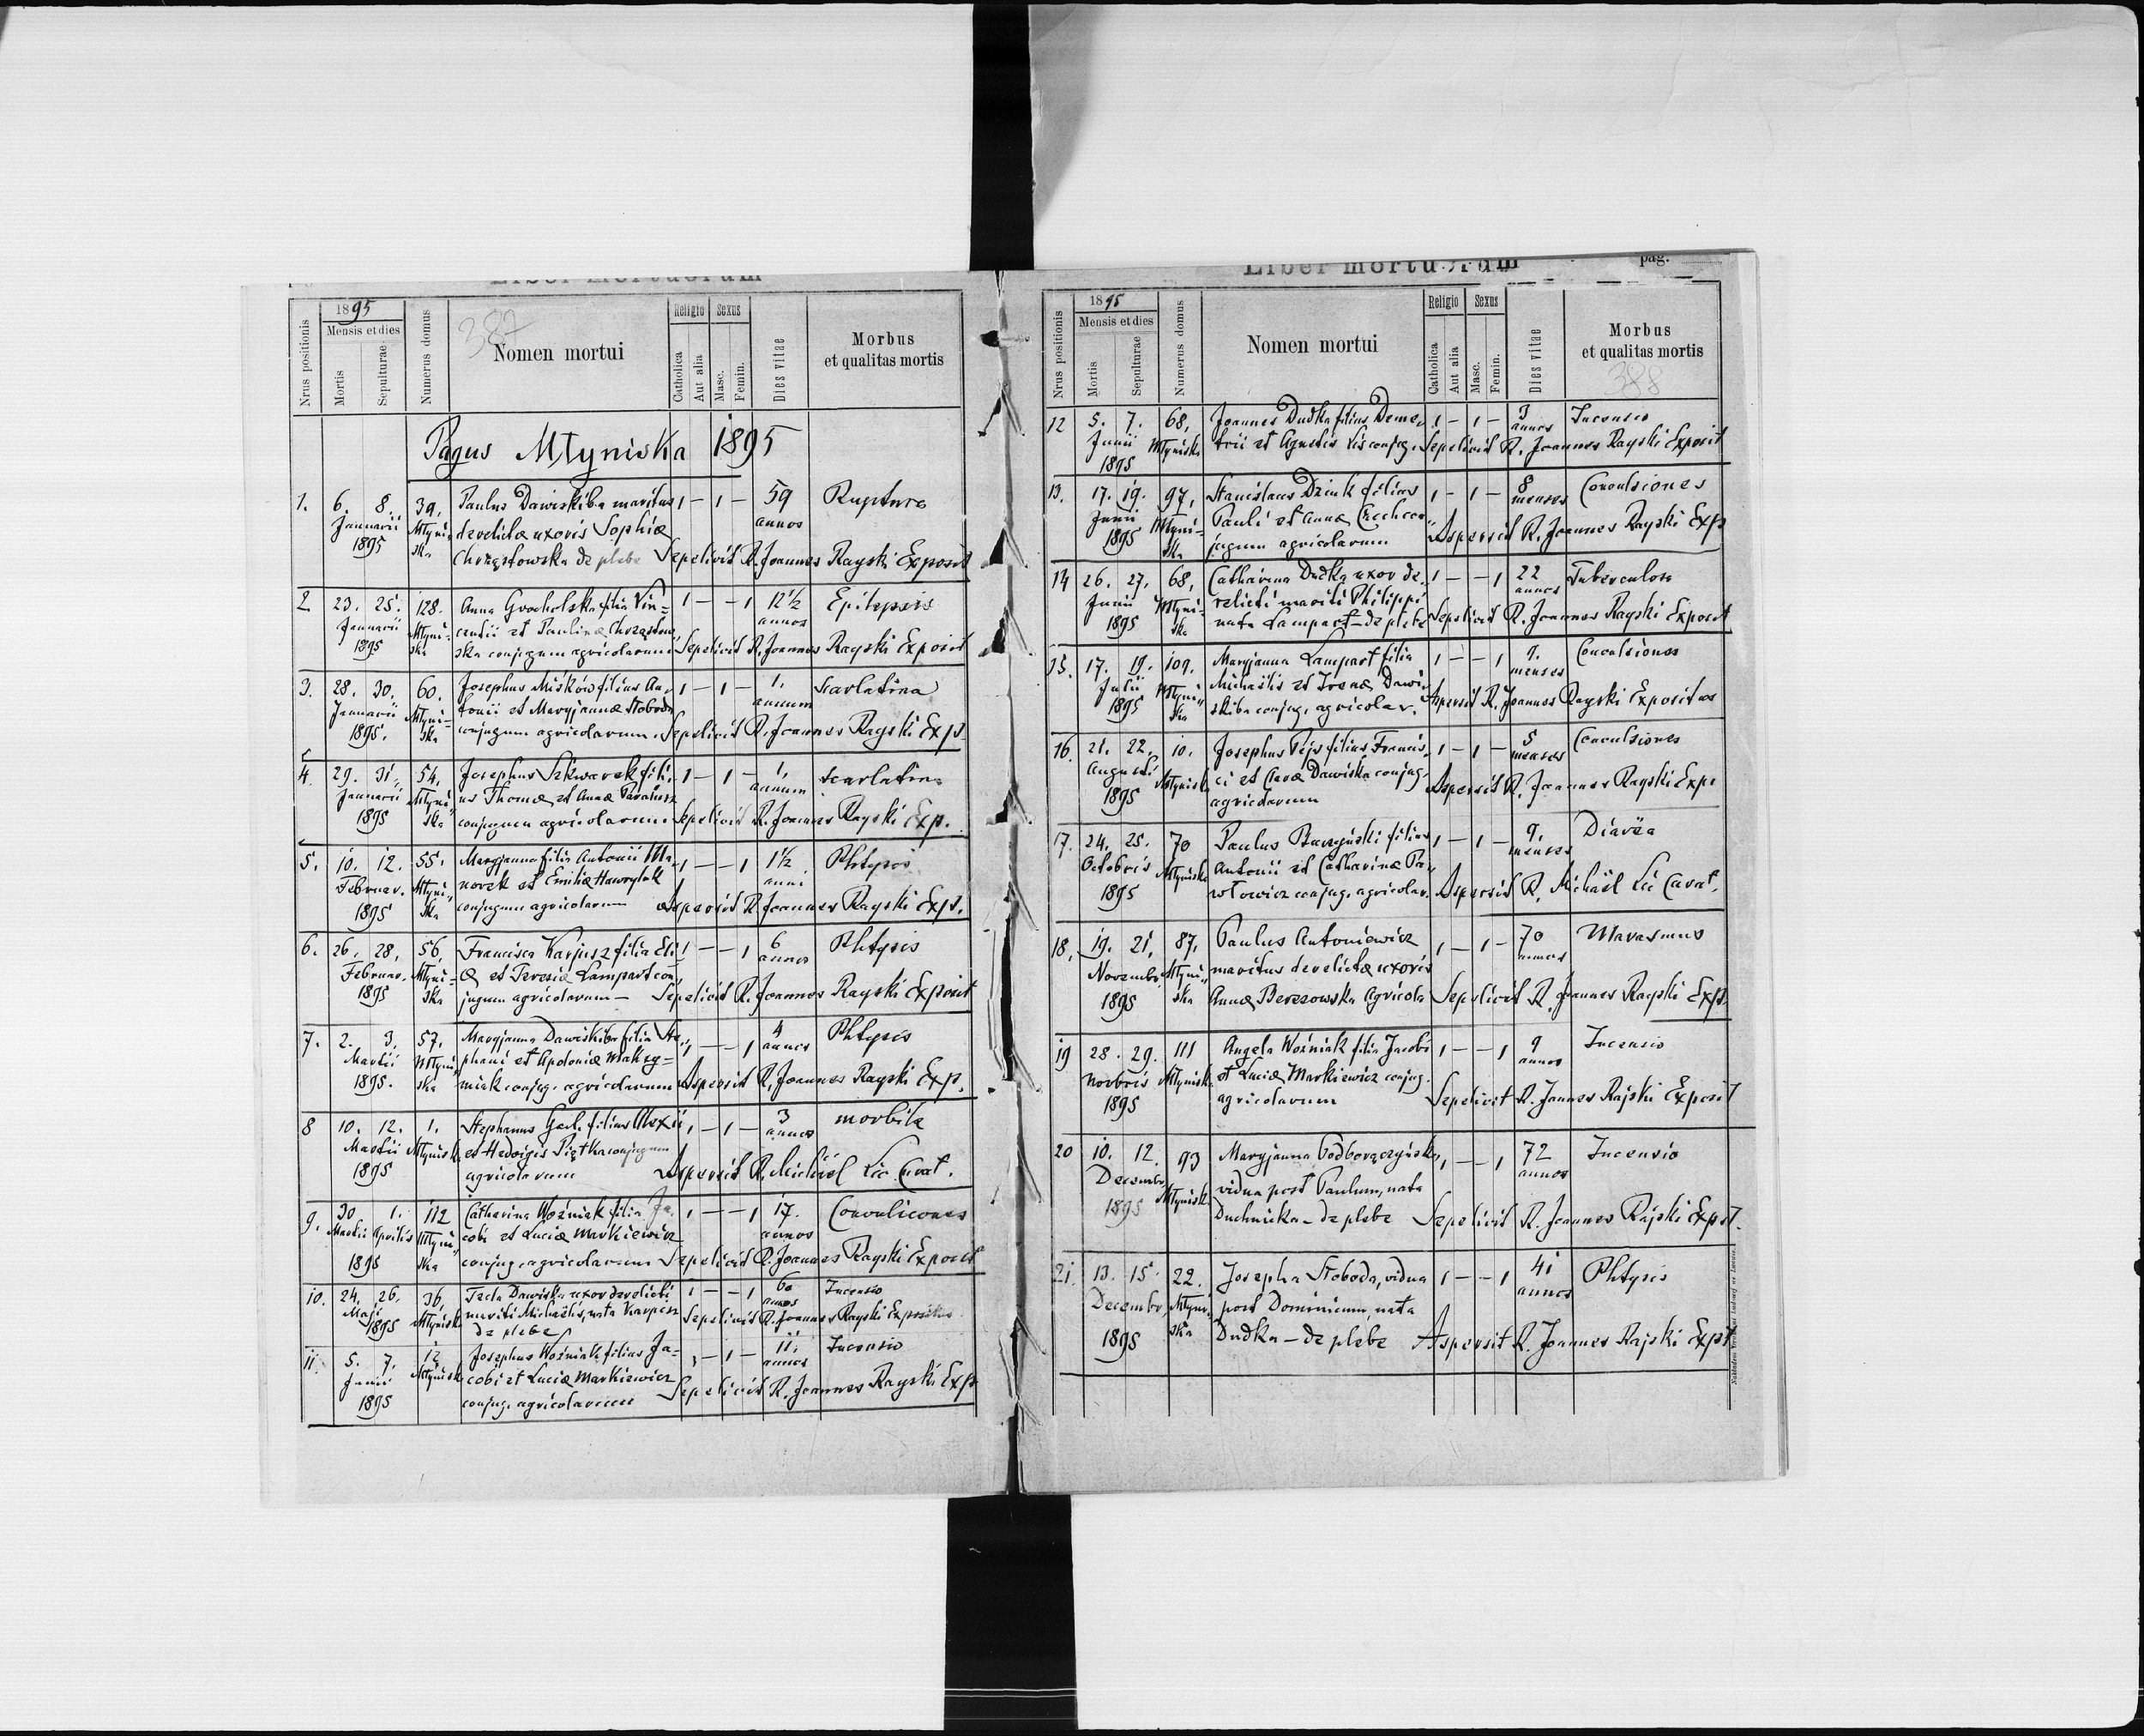 Liber mortuorum
1895
Religio Sexus
Mensis et dies
387
Nrus positionis
Mortis
Sepulturae
Numerus domus
Nomen mortui
Catholica
Aut alia
Masc.
Femin.
Dies vitae
Morbus
et qualitas mortis
Pagus Młyniska 1895
1. 6. 8. 39. Paulus Dawiskiba maritus 1 — 1 — 59 Ruptura
Januarii Młyni- derelictae uxoris Sophiae annos
1895 ska Chrząstowska de plebe Sepelivit R. Joannes Rayski Exposit
2 23. 25. 128. Anna Grocholska filia Vin= 1 — — 1 12½ Epilepsis
Januarii Młyni- centii et Paulinae Chrząstow- annos
1895 ska ska conjugum agricolarum Sepelivit R. Joannes Rayski Exposit
3. 28. 30. 60. Josephus Misków filius An- 1 — 1 — 1. Scarlatina
Januarii Młyni- tonii et Maryjannae Słoboda annum
1895. ska conjugum agricolarum. Sepelivit R. Joannes Rayski Exp.
4. 29. 31. 54. Josephus Szkwarek fili- 1 — 1 — 1. Scarlatina
Januarii Młyni- us Thomae et Annae annum
1895 ska conjugum agricolarum. Sepelivit R. Joannes Rayski Exp.
5. 10. 12. 55. Maryjanna filia Antonii Ma- 1 — — 1 1½ Phtysis
Februar. Młyni- norek et Emiliae Hawrylak anni
1895 ska conjugum agricolarum Aspersit R. Joannes Rayski Exp.
6. 26. 28. 56. Francisca Karpisz filia Eli- 1 — — 1 6 Phtysis
Februar. Młyni- ae et Teresiae Lampart con- annos
1895 ska jugum agricolarum — Sepelivit R. Joannes Rayski Exposit
7. 2. 3. 57. Maryjanna Dawiskiba filia Ste- 1 — — 1 4 Phtysis
Martii Młyni- phani et Apoloniae Makzy= annos
1895. ska miak conjug. agricolarum Aspersit R. Joannes Rayski Exp.
8 10. 12. 1. Stephanus filius Alexii 1 — 1 — 3 morbili
Martii Młynisk. et Hedvigis Piątka conjugum annos
1895 agricolarum Aspersit R. Michael Lic Curat.
9. 30 1. 112 Catharina Woźniak filia Ja- 1 — — 1 17. Convulsiones
Martii Aprilis Młyni- cobi et Luciae Markiewicz annos
1895 ska conjug. agricolarum Sepelivit R. Joannes Rayski Exposit
10. 24. 26. 36. Tecla Dawiska uxor derelicti 1 — — 1 60 Incensio
Maji Młynisk. mariti Michaelis, nata Karpisz annos
1895 de plebe Sepelivit R. Joannes Rayski Expositus
11. 5. 7. 12 Josephus Woźniak filius Ja= 1 — 1 — 11. Incensio
Junii Młynisk. cobi et Luciae Markiewicz annos
1895 conjug. agricolarum Sepelivit R. Joannes Rayski Exp
Liber mortuorum pag.
1895
Religio Sexus
Mensis et dies
Nrus positionis
Mortis
Sepulturae
Numerus domus
Nomen mortui
Catholica
Aut alia
Masc.
Femin.
Dies vitae
Morbus
et qualitas mortis
388
12 5. 7. 68. Joannes Dudka filius Deme- 1 — 1 — 3 Incensio
Junii Młyniska trii et Agnetis Lis conjug. annos
1895 Sepelivit R. Joannes Rayski Exposit
13. 17. 19. 97. Stanislaus Dziuk filius 1 — 1 — 8 Convulsiones
Junii Młyni- Pauli et Annae menses
1895 ska jugum agricolarum Aspersit R. Joannes Rayski Exp
14 26. 27. 68. Catharina Dudka uxor de- 1 — — 1 22 Tuberculosa
Junii Młyni- relicti mariti Philippi annos
1895 ska nata Lampart — de plebe Sepelivit R. Joannes Rayski Exposit
15. 17. 19. 109. Maryjanna Lampart filia 1 — — 1 9. Convulsiones
Julii Młyni- Michaëlis et Irenae Dawi- menses
1895 ska skiba conjug. agricolar. Aspersit R. Joannes Rayski Expositus
16. 21. 22. 10. Josephus filius Francis- 1 — 1 — 5 Convulsiones
Augusti Młynisk. ci et Dawiska conjug. menses
1895 agricolarum Aspersit R. Joannes Rayski Exp.
17. 24. 25. 70 Paulus Buczyński filius 1 — 1 — 9. Diarëa
Octobris Młyniska Antonii et Catharinae Pa- menses
1895 włowicz conjug. agricolar. Aspersit R. Michaël Lic Curat.
18. 19. 21. 87. Paulus Antoniewicz 1 — 1 — 70 Marasmus
Novembr. Młyni- maritus derelictae uxoris annos
1895 ska Annae Berezowska Agricola Sepelivit R. Joannes Rayski Exp.
19 28. 29. 111 Angela Woźniak filia Jacobi 1 — — 1 9 Incensio
Novbris Młynisk. et Luciae Markiewicz conjug. annos
1895 agricolarum Sepelivit R. Joannes Rajski Exposit
20 10. 12. 93 Maryjanna Podborączyńska 1 — — 1 72 Incensio
Decembr. Młynisk. vidua post Paulum, nata annos
1895 Duchnicka — de plebe Sepelivit R. Joannes Rajski Expst.
21. 13. 15. 22. Josepha Słoboda, vidua 1 — — 1 41 Phtysis
Decembr. Młyni- post Dominicum, nata annos
1895 ska Dudka — de plebe Aspersit R. Joannes Rajski Expst